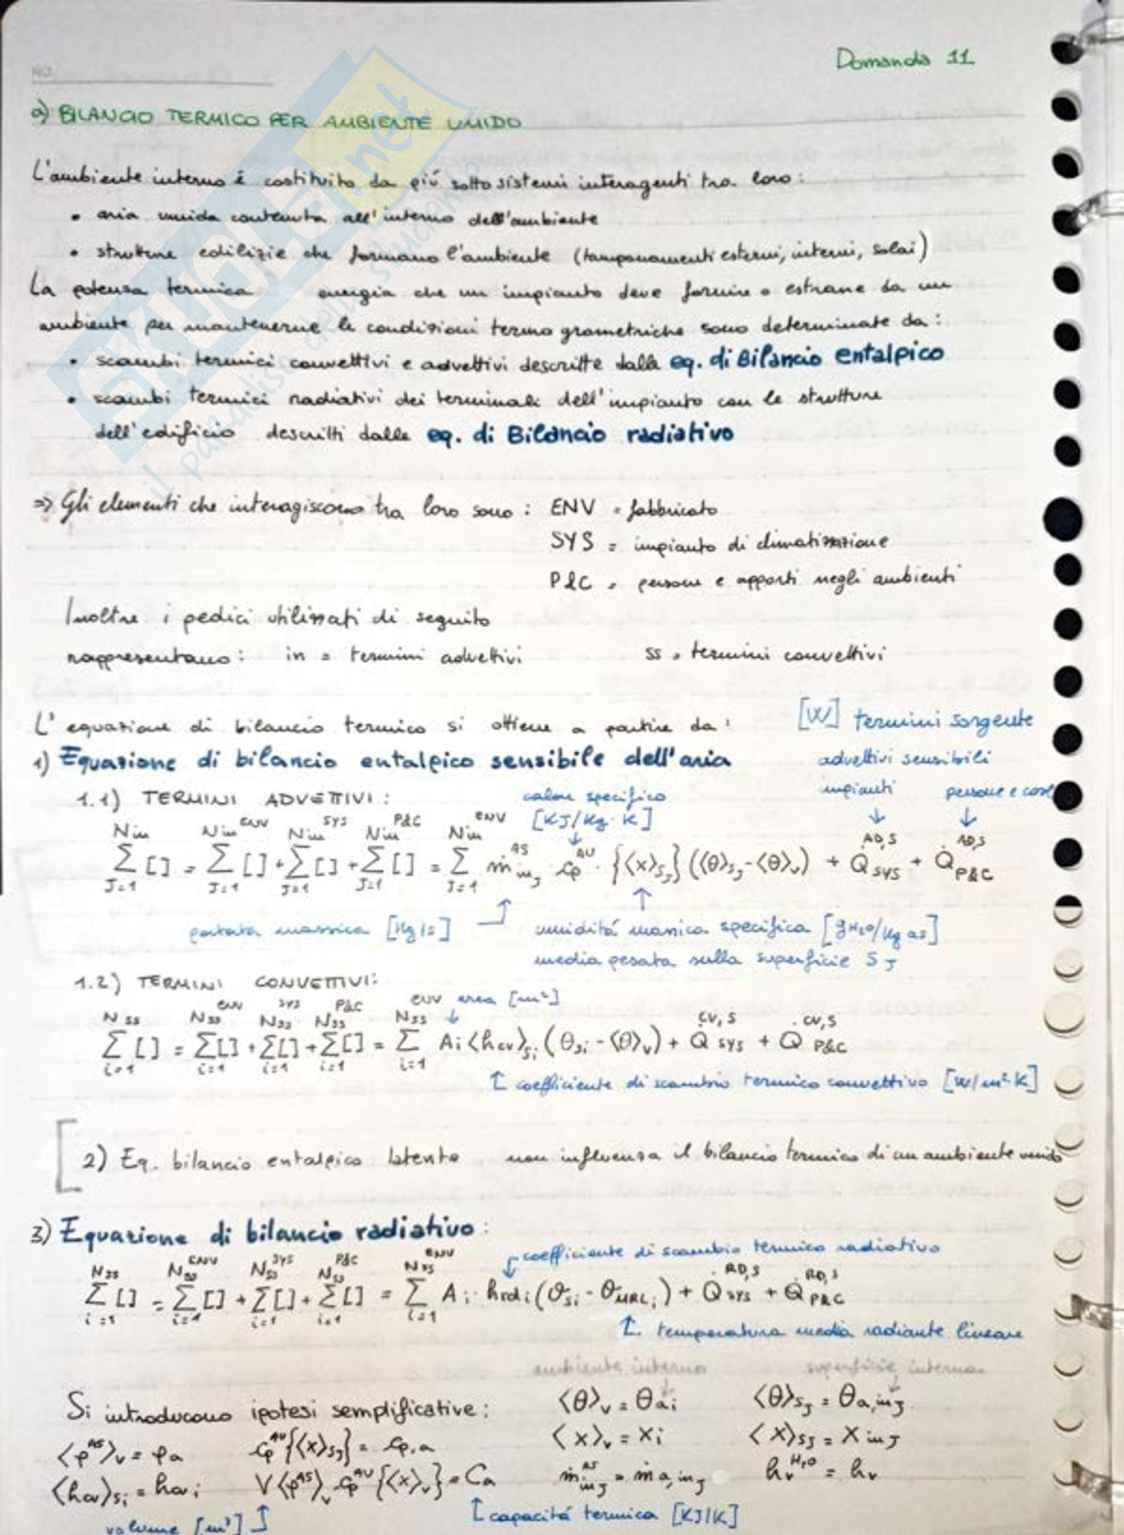 Domanda 11
a) BILANCIO TERMICO PER AMBIENTE UMIDO
L'ambiente interno é costituito da piú sotto sistemi interagenti tra loro:
• aria umida contenuta all'interno dell'ambiente
• strutture edilizie che formano l'ambiente (tamponamenti esterni, interni, solai)
La potenza termica energia che un impianto deve fornire o estrarre da un
ambiente per mantenerne le condizioni termo grometriche sono determinate da:
• scambi termici convettivi e advettivi descritte dalla eq. di Bilancio entalpico
• scambi termici radiativi dei terminali dell'impianto con le strutture
dell'edificio descritti dalle eq. di Bilancio radiativo
=> Gli elementi che interagiscono tra loro sono: ENV = fabbricato
SYS = impianto di climatizzazione
P&C = persone e apporti negli ambienti
Inoltre i pedici utilizzati di seguito
rappresentano: in = termini advettivi ss = termini convettivi
L'equazione di bilancio termico si ottiene a partire da: [W] termini sorgente
1) Equazione di bilancio entalpico sensibile dell'aria advettivi sensibili
impianti persone e cose
1.1) TERMINI ADVETTIVI: calore specifico
[KJ/Kg·K]
∑_{J=1}^{Nin} [] = ∑_{J=1}^{Nin^{ENV}} [] + ∑_{J=1}^{Nin^{SYS}} [] + ∑_{J=1}^{Nin^{P&C}} [] = ∑_{J=1}^{Nin^{ENV}} ṁ_{inJ}^{AS} · cp^{AU} · {⟨x⟩_{SJ}} (⟨θ⟩_{SJ} - ⟨θ⟩_v) + Q̇_{SYS}^{AD,S} + Q̇_{P&C}^{AD,S}
portata massica [Kg/s] umiditá massica specifica [gH₂O/Kg as]
media pesata sulla superficie S_J
1.2) TERMINI CONVETTIVI:
area [m²]
∑_{i=1}^{Nss} [] = ∑_{i=1}^{Nss^{ENV}} [] + ∑_{i=1}^{Nss^{SYS}} [] + ∑_{i=1}^{Nss^{P&C}} [] = ∑_{i=1}^{Nss^{ENV}} Ai ⟨hcv⟩_{Si} (θ_{Si} - ⟨θ⟩_v) + Q̇_{SYS}^{CV,S} + Q̇_{P&C}^{CV,S}
coefficiente di scambio termico convettivo [W/m²K]
2) Eq. bilancio entalpico latente non influenza il bilancio termico di un ambiente umido
3) Equazione di bilancio radiativo:
coefficiente di scambio termico radiativo
∑_{i=1}^{Nss} [] = ∑_{i=1}^{Nss^{ENV}} [] + ∑_{i=1}^{Nss^{SYS}} [] + ∑_{i=1}^{Nss^{P&C}} [] = ∑_{i=1}^{Nss^{ENV}} Ai · hrdi (θ_{Si} - θ_{MRLi}) + Q̇_{SYS}^{RD,S} + Q̇_{P&C}^{RD,S}
temperatura media radiante lineare
ambiente interno superficie interna
Si introducono ipotesi semplificative: ⟨θ⟩_v = θ_{ai} ⟨θ⟩_{SJ} = θ_{a,inJ}
⟨ρ^{AS}⟩_v = ρa cp^{AU}{⟨x⟩_{SJ}} = cp,a ⟨x⟩_v = xi ⟨x⟩_{SJ} = x_{inJ}
⟨hcv⟩_{Si} = hcvi V⟨ρ^{AS}⟩_v cp^{AU}{⟨x⟩_v} = Ca ṁ_{inJ}^{AS} = ṁ_{a,inJ} h_v^{H₂O} = hv
volume [m³] capacitá termica [KJ/K]